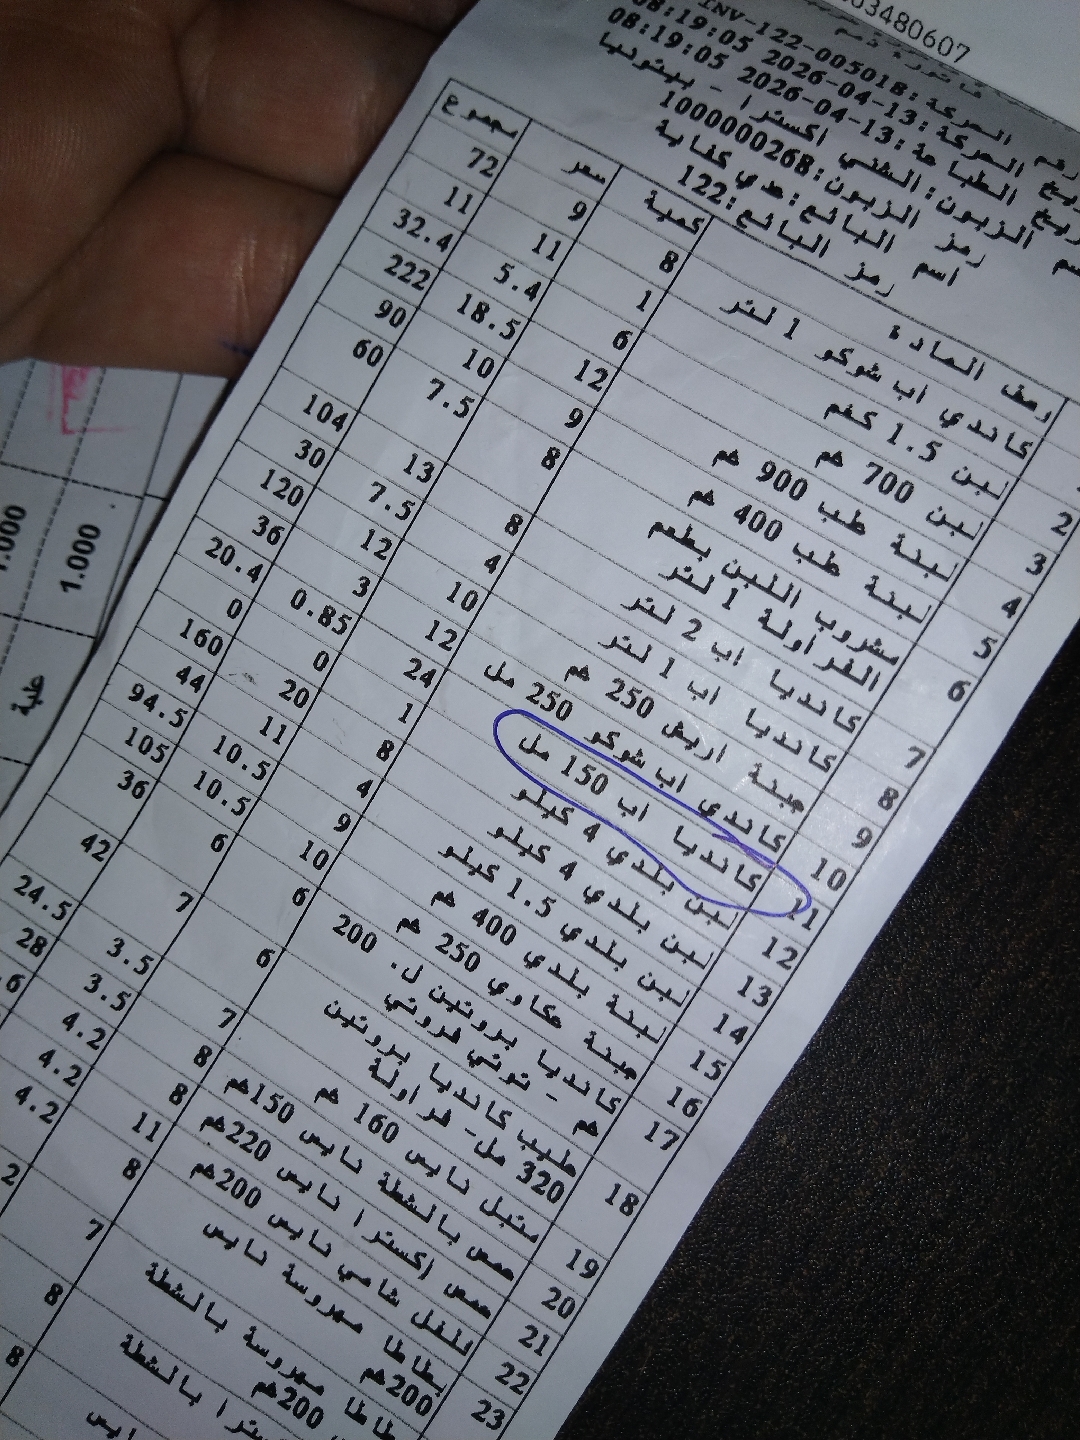 03480607
رقم الحركة:INV-122-005018
تاريخ الحركة:13-04-2026 08:19:05
تاريخ الطباعة:13-04-2026 08:19:05
اسم الزبون:الشني اكسترا - بيتونيا
رمز الزبون:1000000268
اسم البائع:هدي كفاية
رمز البائع:122
وصف المادة كمية سعر مجموع
كاندي اب شوكو 1 لتر 8 9 72
2 لبن 1.5 كغم 1 11 11
3 لبن 700 غم 6 5.4 32.4
4 لبنة طب 900 غم 12 18.5 222
5 لبنة طب 400 غم 9 10 90
6 مشروب اللبن بطعم 8 7.5 60
الفراولة 1 لتر
7 كانديا اب 2 لتر 8 13 104
8 كانديا اب 1 لتر 4 7.5 30
9 جبنة اريش 250 غم 10 12 120
10 كاندي اب شوكو 250 مل 12 3 36
11 كانديا اب 150 مل 24 0.85 20.4
12 لبن بلدي 4 كيلو 1 0 0
13 لبن بلدي 4 كيلو 8 20 160
14 لبن بلدي 1.5 كيلو 4 11 44
15 لبنة بلدي 400 غم 9 10.5 94.5
16 جبنة عكاوي 250 غم 10 10.5 105
17 كانديا بروتين ل. 200 6 6 36
غم - توتي فروتي
18 حليب كانديا بروتين 6 7 42
320 مل- فراولة
19 متبل نايس 160 غم 7 3.5 24.5
20 حمص بالشطة نايس 150غم 8 3.5 28
21 حمص اكسترا نايس 220غم 8 4.2
22 فلفل شامي نايس 200غم 11 4.2
23 بطاطا مهروسة نايس 8 4.2
200غم
بطاطا مهروسة بالشطة 7 2
200غم
بالشطة 8
نايس 8
1.000
علبة